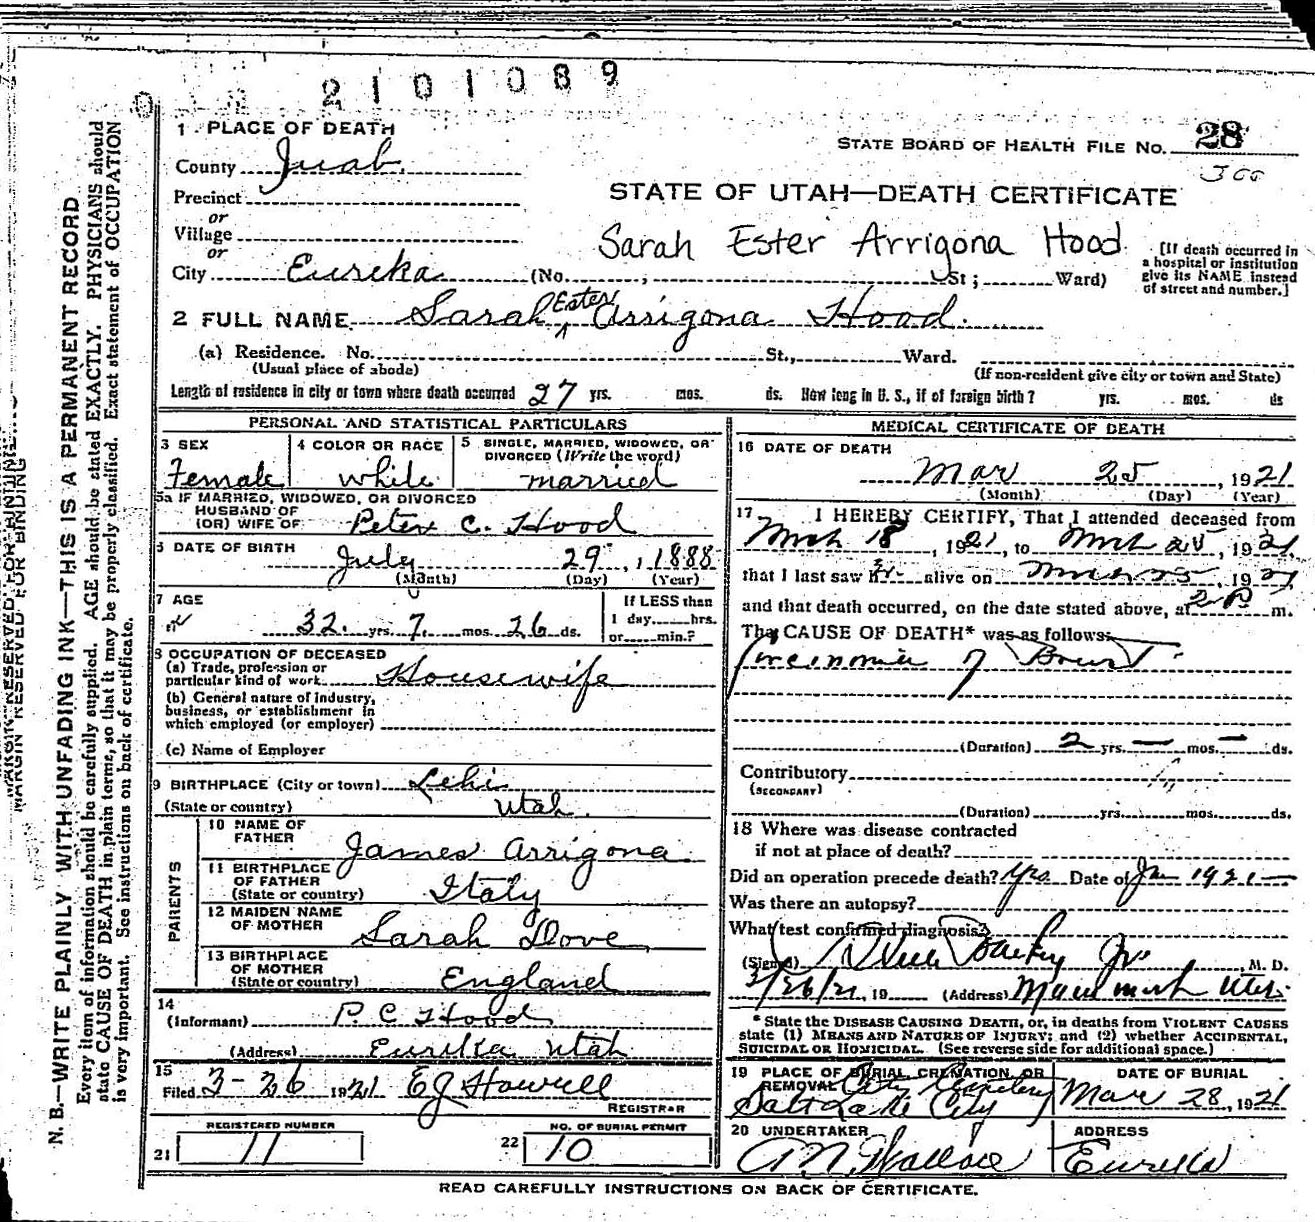 2101089
1 PLACE OF DEATH
STATE BOARD OF HEALTH FILE NO. 28
300
County Juab
Precinct
or
STATE OF UTAH—DEATH CERTIFICATE
Village
or
Sarah Ester Arrigona Hood
City Eureka (No. ; St; Ward)
[If death occurred in
a hospital or institution
give its NAME instead
of street and number.]
2 FULL NAME Sarah Ester Arrigona Hood
(a) Residence. No. St., Ward.
(Usual place of abode)
(If non-resident give city or town and State)
Length of residence in city or town where death occurred 27 yrs. mos. ds. How long in U. S., if of foreign birth? yrs. mos. ds
PERSONAL AND STATISTICAL PARTICULARS
3 SEX
Female
4 COLOR OR RACE
white
5 SINGLE, MARRIED, WIDOWED, OR
DIVORCED (Write the word)
married
5a IF MARRIED, WIDOWED, OR DIVORCED
HUSBAND OF
(OR) WIFE OF Peter C. Hood
6 DATE OF BIRTH
July 29, 1888
(Month) (Day) (Year)
7 AGE
32 yrs. 7 mos. 26 ds.
If LESS than
1 day hrs.
or min.?
8 OCCUPATION OF DECEASED
(a) Trade, profession or
particular kind of work Housewife
(b) General nature of industry,
business, or establishment in
which employed (or employer)
(c) Name of Employer
9 BIRTHPLACE (City or town) Lehi
(State or country) Utah
PARENTS
10 NAME OF
FATHER James Arrigona
11 BIRTHPLACE
OF FATHER
(State or country) Italy
12 MAIDEN NAME
OF MOTHER Sarah Dove
13 BIRTHPLACE
OF MOTHER
(State or country) England
14
(Informant) P. C Hood
(Address) Eureka Utah
15
Filed 3-26 1921 EJ Howell
REGISTRAR
REGISTERED NUMBER
21 11
NO. OF BURIAL PERMIT
22 10
MEDICAL CERTIFICATE OF DEATH
16 DATE OF DEATH
Mar 25, 1921
(Month) (Day) (Year)
17 I HEREBY CERTIFY, That I attended deceased from
Mch 18, 1921, to Mch 25, 1921,
that I last saw her alive on March 25, 1921
and that death occurred, on the date stated above, at 2 P m.
The CAUSE OF DEATH* was as follows:
Carcinoma of Breast
(Duration) 2 yrs. — mos. — ds.
Contributory
(SECONDARY)
(Duration) yrs. mos. ds.
18 Where was disease contracted
if not at place of death?
Did an operation precede death? Yes Date of Jan 1921
Was there an autopsy?
What test confirmed diagnosis?
(Signed) Bailey Jr, M. D.
3/26/21, 19 (Address) Mammoth Utah
* State the DISEASE CAUSING DEATH, or, in deaths from VIOLENT CAUSES
state (1) MEANS AND NATURE OF INJURY; and (2) whether ACCIDENTAL,
SUICIDAL OR HOMICIDAL. (See reverse side for additional space.)
19 PLACE OF BURIAL, CREMATION, OR
REMOVAL City Cemetery
Salt Lake City
DATE OF BURIAL
Mar 28, 1921
20 UNDERTAKER
A. N. Wallace
ADDRESS
Eureka
READ CAREFULLY INSTRUCTIONS ON BACK OF CERTIFICATE.
MARGIN RESERVED FOR BINDING
N. B.—WRITE PLAINLY WITH UNFADING INK—THIS IS A PERMANENT RECORD
Every item of information should be carefully supplied. AGE should be stated EXACTLY. PHYSICIANS should
state CAUSE OF DEATH in plain terms, so that it may be properly classified. Exact statement of OCCUPATION
is very important. See instructions on back of certificate.